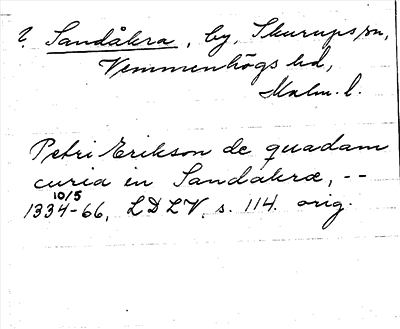 2. Sandåkra, by, Skurups sn,
Vemmenhögs hd,
Malm. l.
Petri Erikson de quadam
curia in Sandakræ, --
10/5
1334-66, LDLV, s. 114. orig.